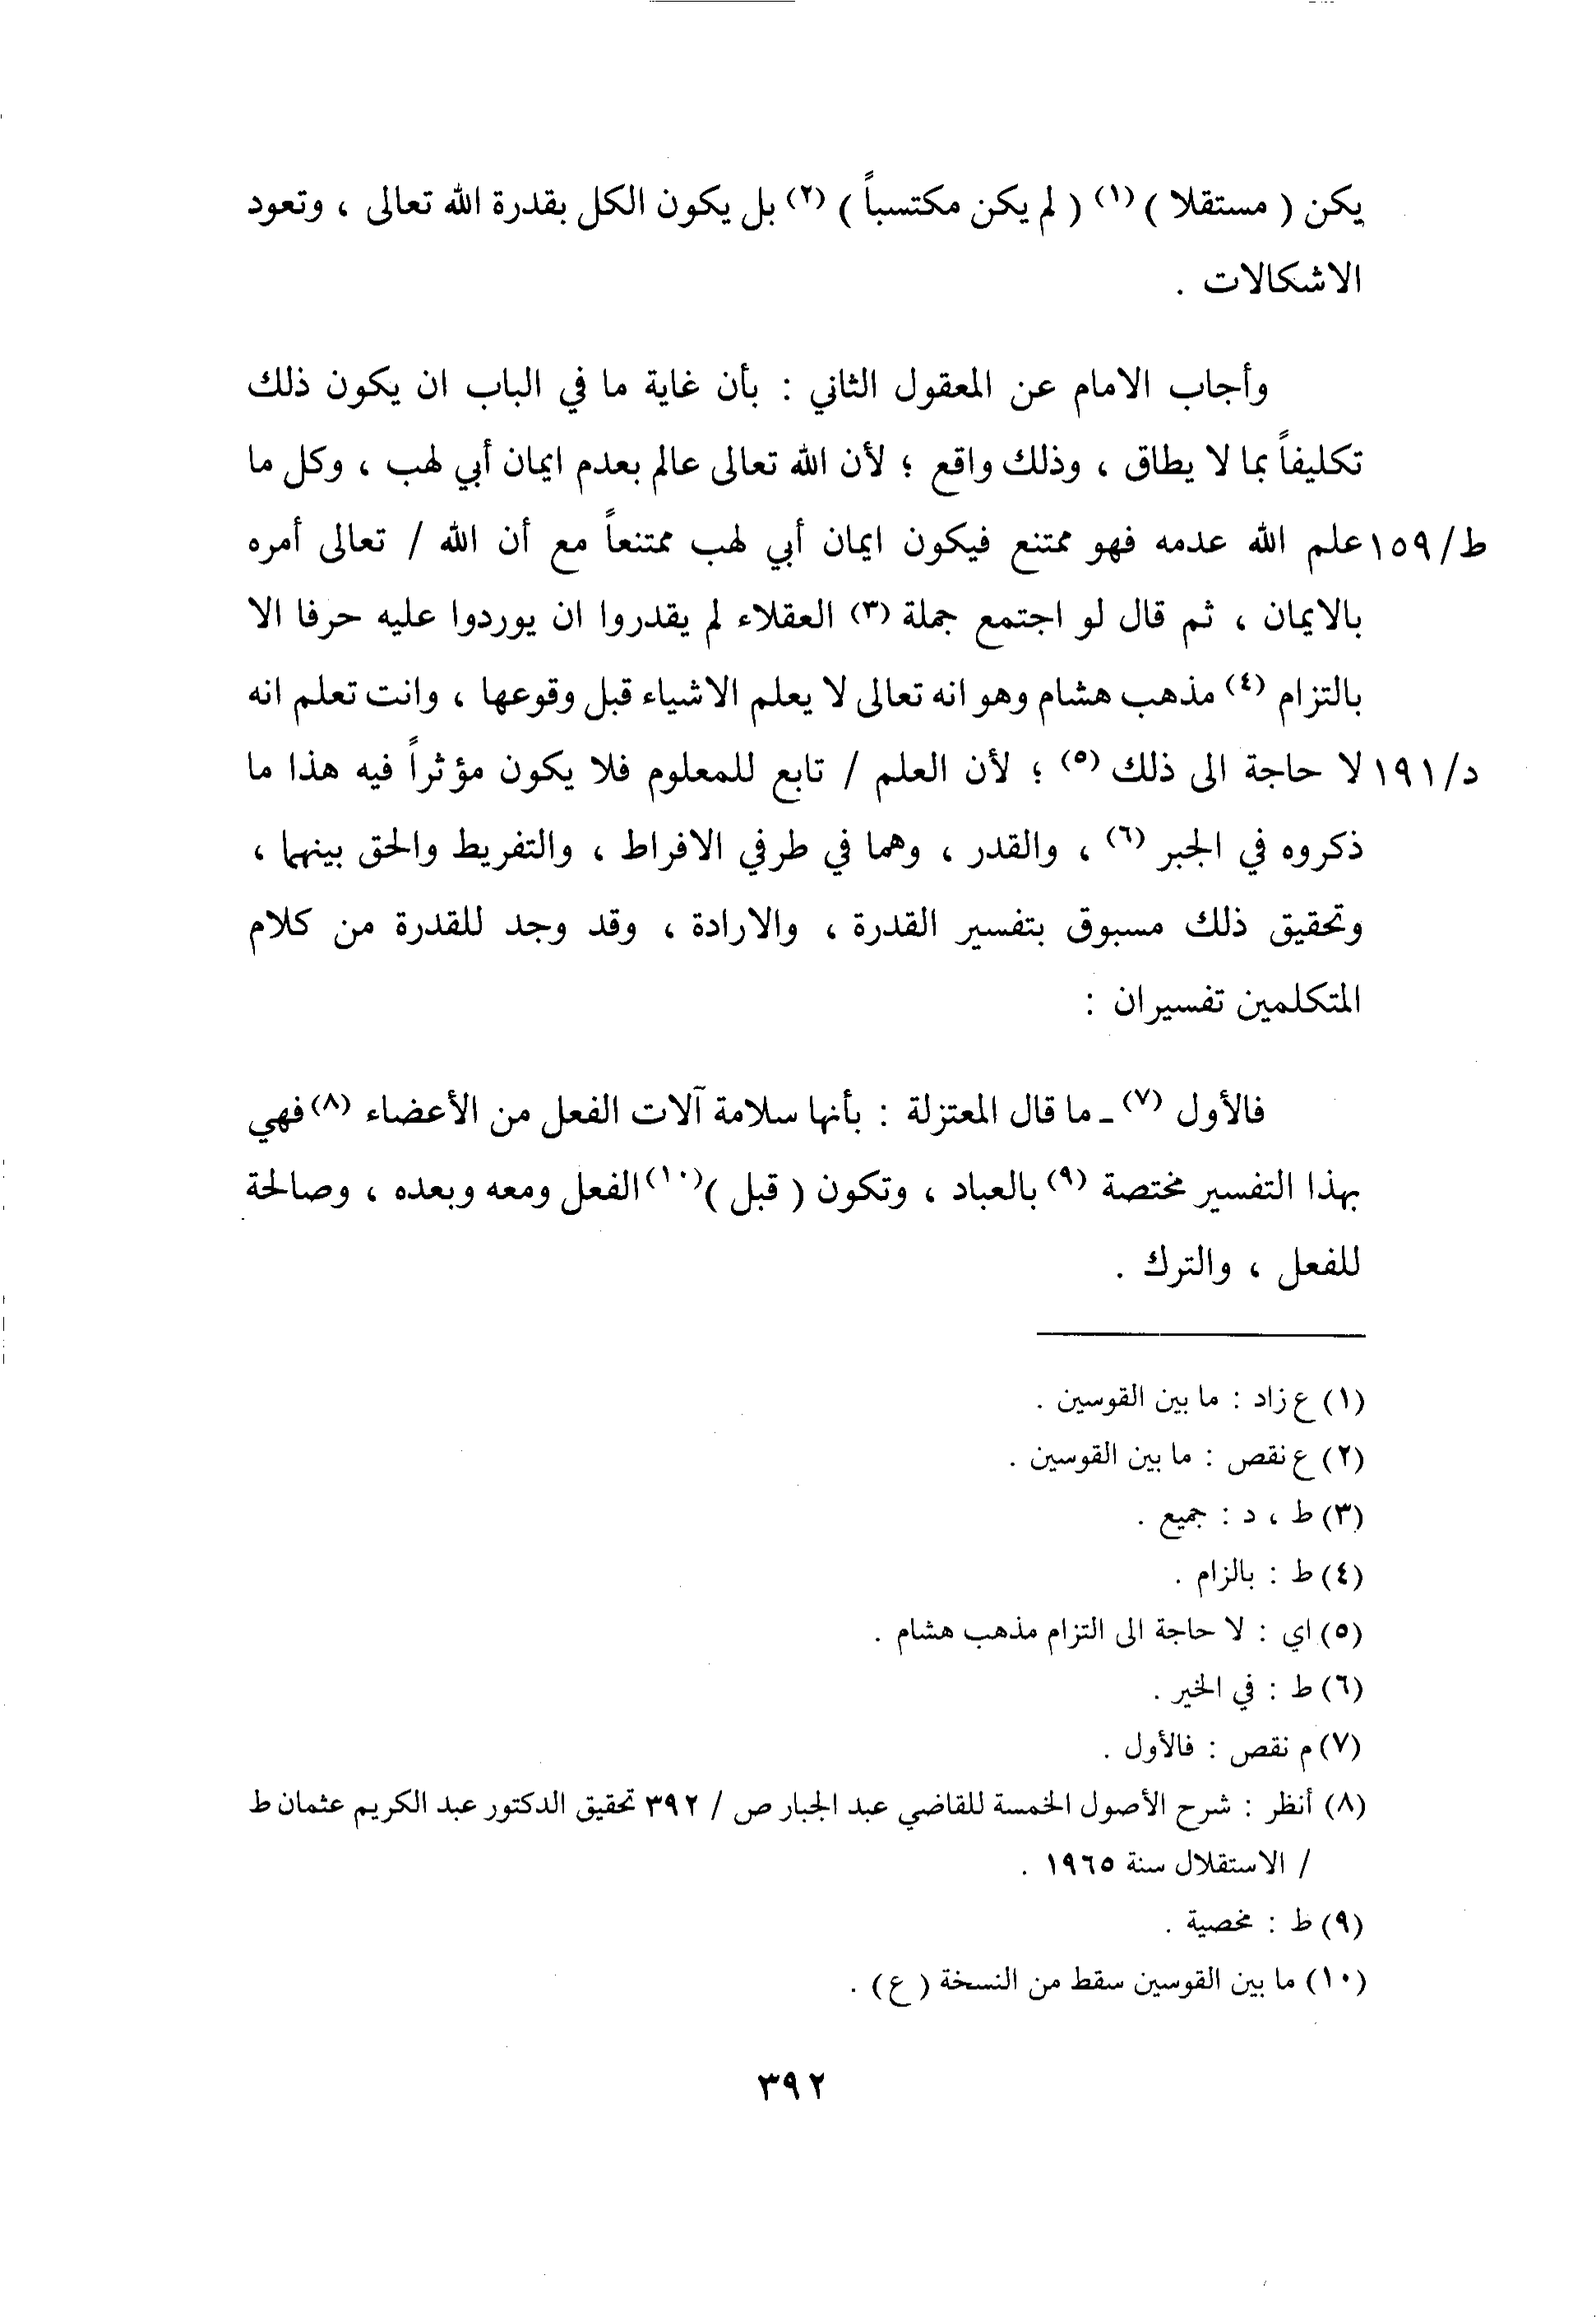 يكن ( مستقلا ) (١) ( لم يكن مكتسباً ) (٢) بل يكون الكل بقدرة الله تعالى ، وتعود
الاشكالات .
وأجاب الامام عن المعقول الثاني : بأن غاية ما في الباب ان يكون ذلك
تكليفاً بما لا يطاق ، وذلك واقع ؛ لأن الله تعالى عالم بعدم ايمان أبي لهب ، وكل ما
ط/١٥٩ علم الله عدمه فهو ممتنع فيكون ايمان أبي لهب ممتنعاً مع أن الله / تعالى أمره
بالايمان ، ثم قال لو اجتمع جملة (٣) العقلاء لم يقدروا ان يوردوا عليه حرفا الا
بالتزام (٤) مذهب هشام وهو انه تعالى لا يعلم الاشياء قبل وقوعها ، وانت تعلم انه
د/١٩١ لا حاجة الى ذلك (٥) ؛ لأن العلم / تابع للمعلوم فلا يكون مؤثراً فيه هذا ما
ذكروه في الجبر (٦) ، والقدر ، وهما في طرفي الافراط ، والتفريط والحق بينهما ،
وتحقيق ذلك مسبوق بتفسير القدرة ، والارادة ، وقد وجد للقدرة من كلام
المتكلمين تفسيران :
فالأول (٧) ـ ما قال المعتزلة : بأنها سلامة آلات الفعل من الأعضاء (٨) فهي
بهذا التفسير مختصة (٩) بالعباد ، وتكون ( قبل ) (١٠) الفعل ومعه وبعده ، وصالحة
للفعل ، والترك .
(١) ع زاد : ما بين القوسين .
(٢) ع نقص : ما بين القوسين .
(٣) ط ، د : جميع .
(٤) ط : بالزام .
(٥) اي : لا حاجة الى التزام مذهب هشام .
(٦) ط : في الخير .
(٧) م نقص : فالأول .
(٨) أنظر : شرح الأصول الخمسة للقاضي عبد الجبار ص / ٣٩٢ تحقيق الدكتور عبد الكريم عثمان ط
/ الاستقلال سنة ١٩٦٥ .
(٩) ط : مخصية .
(١٠) ما بين القوسين سقط من النسخة ( ع ) .
٣٩٢